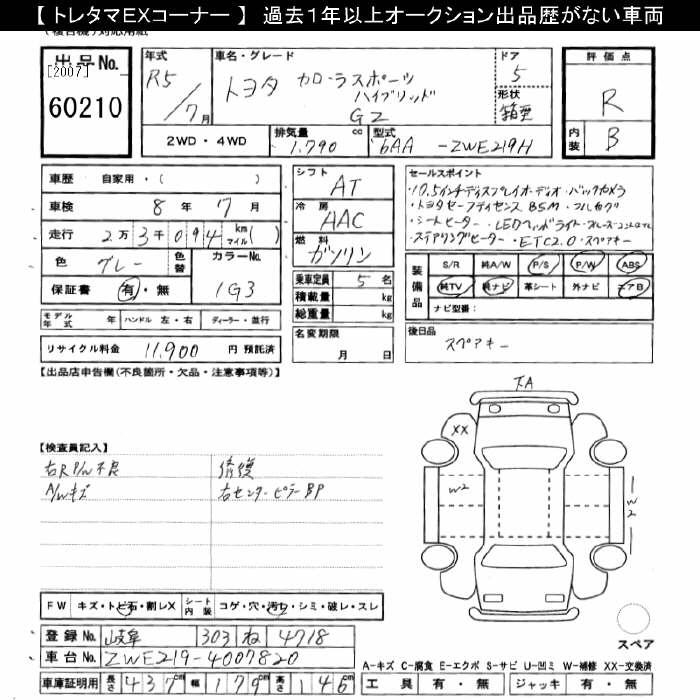 【 トレタマEXコーナー 】 過去1年以上オークション出品歴がない車両
出品No.
[2007]
60210
年式 R5/7月
車名・グレード
トヨタ カローラスポーツ
ハイブリッド
GZ
ドア 5
形状 箱型
評価点
R
内装 B
2WD・4WD 排気量 1,790 cc 型式 6AA -ZWE219H
車歴 自家用・( )
車検 8年 7月
走行 2万3千094 km マイル( )
色 グレー 色替 カラーNo. 1G3
保証書 有・無
モデル年式 年 ハンドル 左・右 ディーラー・並行
リサイクル料金 11,900 円 預託済
シフト AT
冷房 AAC
燃料 ガソリン
乗車定員 5 名
積載量 kg
総重量 kg
名変期限 月 日
セールスポイント
・10.5インチディスプレイオーディオ・バックカメラ
・トヨタセーフティセンス BSM・フルセグ
・シートヒーター・LEDヘッドライト・クルーズコントロール
・ステアリングヒーター・ETC2.0・スペアキー
装備品 S/R 純A/W P/S P/W ABS
純TV 純ナビ 革シート 外ナビ エアB
ナビ型番:
後日品
スペアキー
【出品店申告欄(不良箇所・欠品・注意事項等)】
TA
XX
W2
W2
【検査員記入】
右R P/W不良 修復
A/Wキズ 右センターピラーBP
FW キズ・トビ石・割レX シート内装 コゲ・穴・汚レ・シミ・破レ・スレ
登録No. 岐阜 303 ね 4718
車台No. ZWE219-4007820
車庫証明用 長さ 437 cm 幅 179 cm 高さ 146 cm
スペア
A-キズ C-腐食 E-エクボ S-サビ U-凹ミ W-補修 XX-交換済
工具 有・無 ジャッキ 有・無